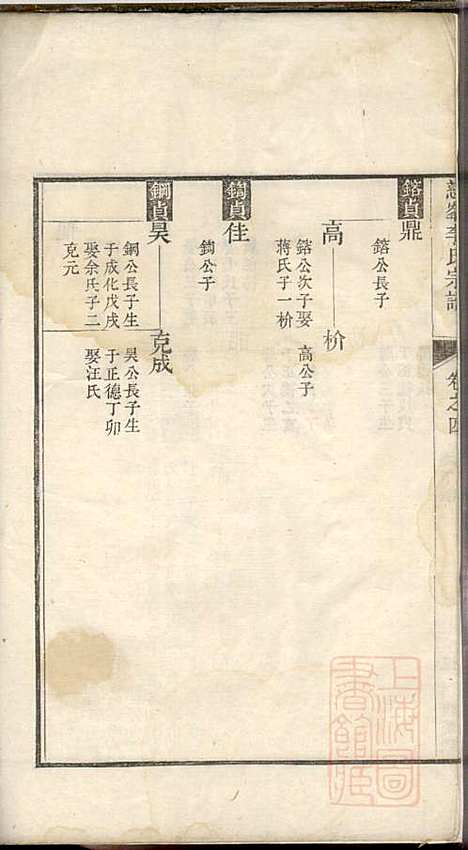 李氏宗譜
卷之四
鎔貞
鼎
鎔公長子
高
枌
鎔公次子娶
蔣氏子一枌
高公子
鐫貞
佳
鐫公子
鋼貞
昊
克成
鋼公長子生
于成化戊戌
娶余氏子二
克元
昊公長子生
于正德丁卯
娶汪氏
上海圖
書館藏